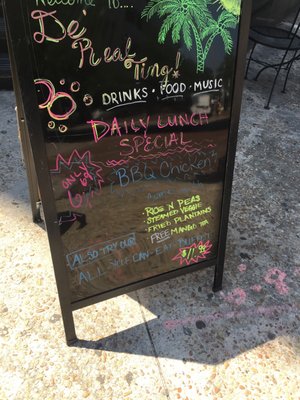 Welcome To....
De' Real
Ting!
DRINKS • FOOD • MUSIC
DAILY LUNCH
SPECIAL
only
"BBQ Chicken"
• RICE N PEAS
• STEAMED VEGGIE
• FRIED PLANTAINS
FREE MANGO TEA
ALSO TRY OUR
ALL YOU CAN EAT BUFFET